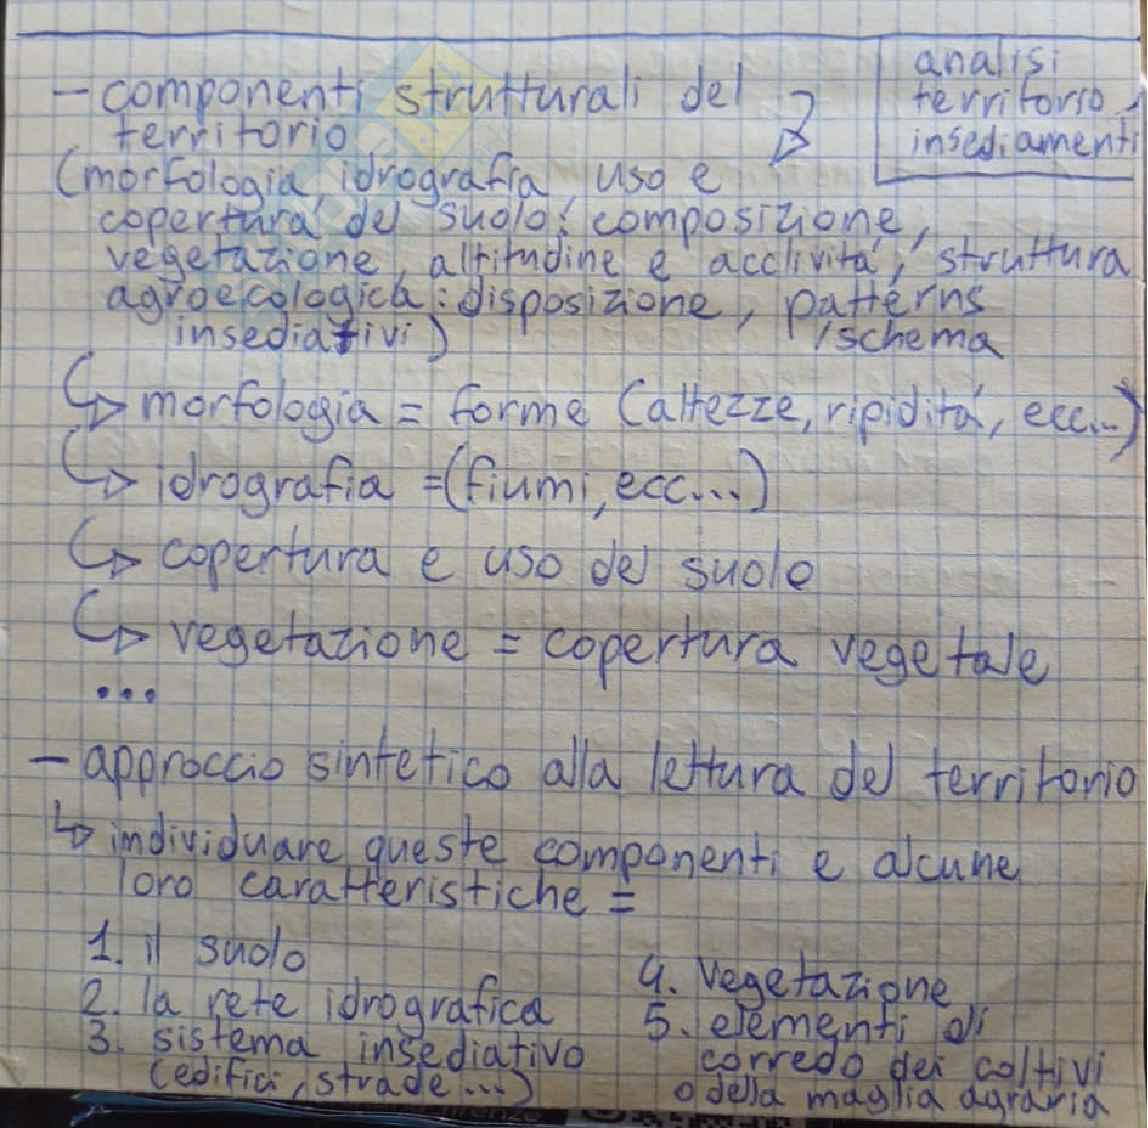 - componenti strutturali del
territorio
analisi
territorio,
insediamenti
(morfologia, idrografia, uso e
copertura del suolo: composizione,
vegetazione, altitudine e acclività, struttura
agroecologica: disposizione, patterns
insediativi) /schema
↳ morfologia = forme (altezze, ripidità, ecc...)
↳ idrografia = (fiumi, ecc...)
↳ copertura e uso del suolo
↳ vegetazione = copertura vegetale
...
- approccio sintetico alla lettura del territorio
↳ individuare queste componenti e alcune
loro caratteristiche =
1. il suolo
2. la rete idrografica
3. sistema insediativo
(edifici, strade...)
4. vegetazione
5. elementi di
corredo dei coltivi
o della maglia agraria